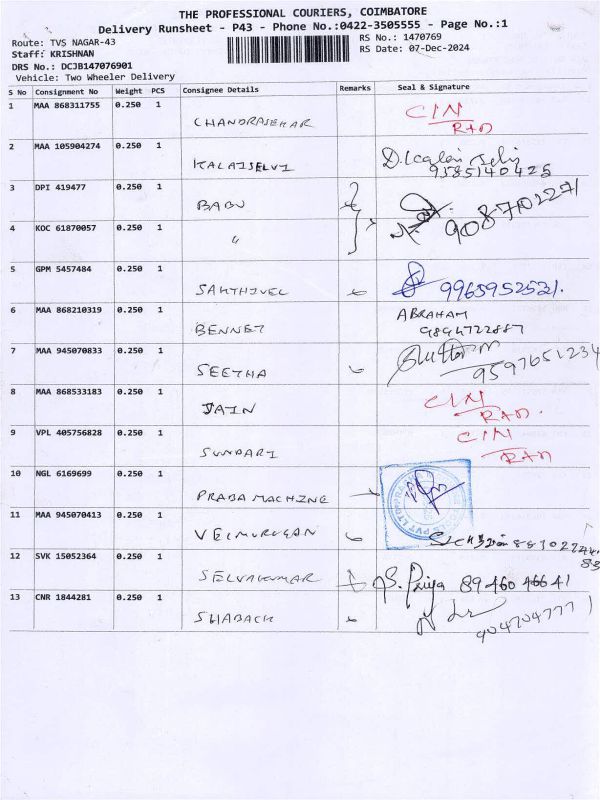 THE PROFESSIONAL COURIERS, COIMBATORE
Delivery Runsheet - P43 - Phone No.:0422-3505555 - Page No.:1
Route: TVS NAGAR-43
RS No.: 1470769
Staff: KRISHNAN
RS Date: 07-Dec-2024
DRS No.: DCJB147076901
Vehicle: Two Wheeler Delivery
S No Consignment No Weight PCS Consignee Details Remarks Seal & Signature
1 MAA 868311755 0.250 1 CHANDRASEHAR CIN
RAD
2 MAA 105904274 0.250 1 KALAISELVI
9585140425
3 DPI 419477 0.250 1 BABU
4 KOC 61870057 0.250 1 "
5 GPM 5457484 0.250 1 SAKTHIVEL 9965952521.
6 MAA 868210319 0.250 1 BENNET ABRAHAM
9894722887
7 MAA 945070833 0.250 1 SEETHA
9597651234
8 MAA 868533183 0.250 1 JAIN CIN
RAD.
9 VPL 405756828 0.250 1 SUNDARI CIN
RAD
10 NGL 6169699 0.250 1 PRABA MACHINE
11 MAA 945070413 0.250 1 VELMURUGAN
12 SVK 15052364 0.250 1 SELVAKUMAR S. Priya 89460 46641
13 CNR 1844281 0.250 1 SHABACK
9047047771